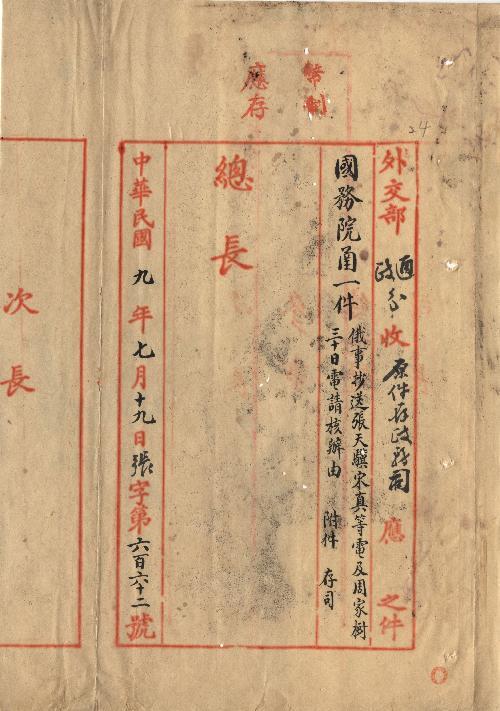 幣制
應存
24
外交部 收 原件存政務司 應 之件
國務院函一件
俄事抄送張天驥宋真等電及周家樹
三十日電請核辦由 附件 存司
總長
中華民國九年七月十九日張字第六百六十二號
次長